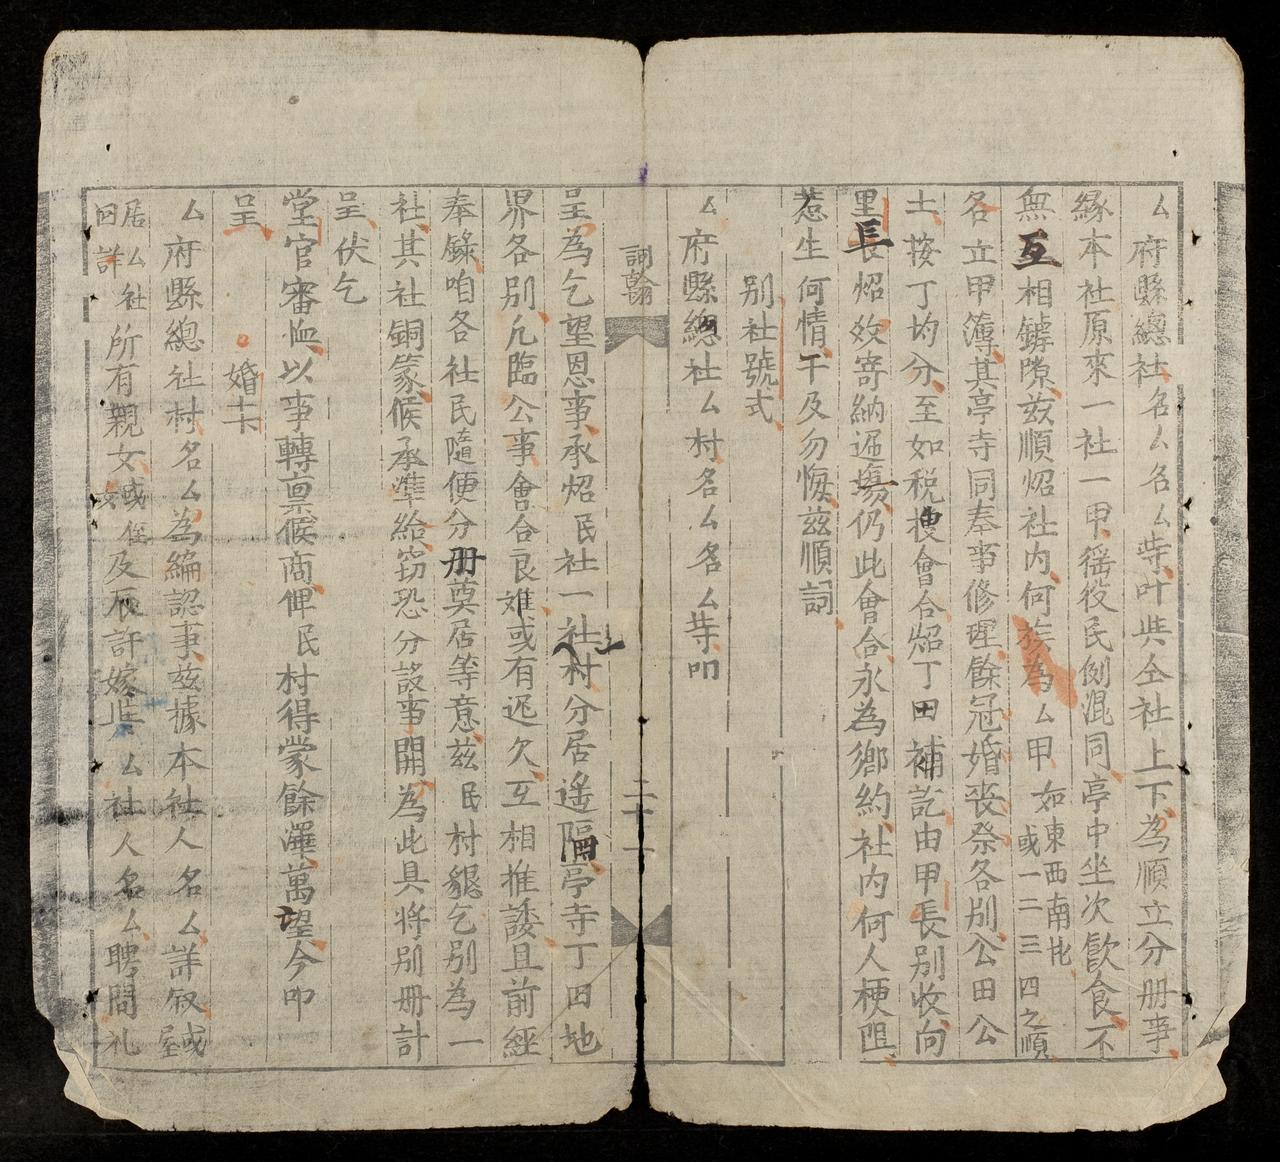 厶府縣總社名厶名厶等叶與仝社上下為順立分册事
緣本社原來一社一甲徭役民例混同亭中坐次飲食不
無互相鏬隙兹順炤社内何族為厶甲如東西南北或一二三四之順
各立甲簿其亭寺同奉事修理餘冠婚丧祭各別公田公
土按丁均分至如税搜會合炤丁田補訖由甲長别收向
里長炤效寄納遞塲仍此會合永為鄉約社内何人梗
惹生何情干及勿悔兹順詞
别社號式
厶府縣總社厶村名厶名厶等叩
詞翰
二十一
呈為乞望恩事承炤民社一社村分居遙隔亭寺丁田地
界各别凢臨公事會合良难或有遅欠互相推諉且前經
奉錄咱各社民隨便分册奠居等意兹民村貇乞别為一
社其社銅篆候承準給窃恐分設事開為此具将别册計
呈伏乞
堂官審恤以事轉禀候商俾民村得蒙餘澤萬望今叩
呈 婚
厶府縣總社村名厶為編認事兹據本社人名厶詳叙或屋
居厶社田詳所有親女或侄女及辰許嫁與厶社人名厶聘問礼